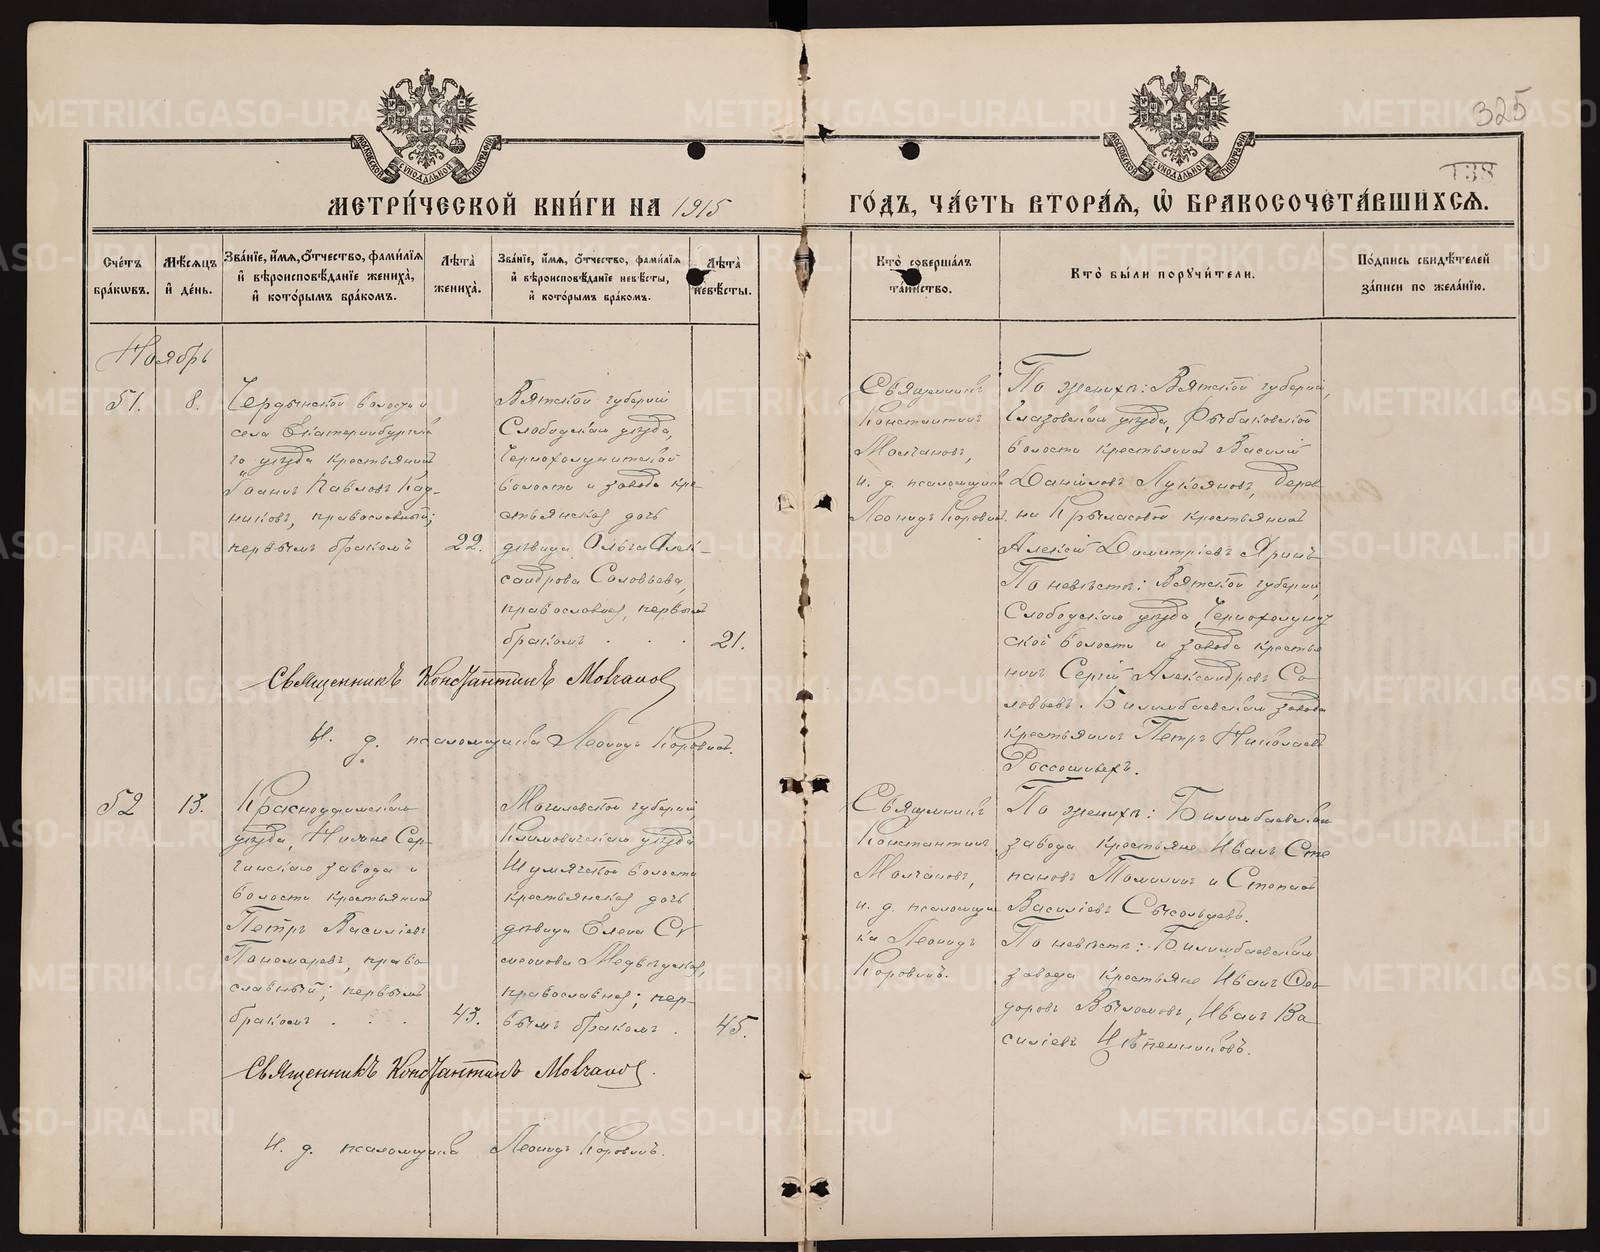 325
138
МЕТРИ́ЧЕСКОЙ КНИ́ГИ НА 1915
ГО́ДЪ, ЧА́СТЬ ВТОРА́Я, Ѡ БРАКОСОЧЕТА́ВШИХСЯ.
МОСКОВСКОЙ СУНОДАЛЬНОЙ ТИПОГРАФІИ
МОСКОВСКОЙ СУНОДАЛЬНОЙ ТИПОГРАФІИ
Сче́тъ бра́ковъ.
Мѣ́сяцъ и҆ де́нь.
Зва́нїе, и҆́мя, ѻ҆́тчество, фами́лїя и҆ вѣроисповѣ́данїе жениха̀, и҆ кото́рымъ бра́комъ.
Лѣ́та жениха̀.
Зва́нїе, и҆́мя, ѻ҆́тчество, фами́лїя и҆ вѣроисповѣ́данїе невѣ́сты, и҆ кото́рымъ бра́комъ.
Лѣ́та невѣ́сты.
Кто̀ соверша́лъ та́инство.
Кто̀ бы́ли порꙋчи́тели.
По́дпись свидѣ́телей за́писи по жела́нїю.
Ноябрь
51.
8.
села Екатеринбургска
го уѣзда крестьянинъ
Іоаннъ Павловъ Кад-
никовъ, православный;
первымъ бракомъ
22.
Вятской губерніи
Слободскаго уѣзда,
Чернохолуницкой
волости и завода кре-
стьянская дочь
дѣвица Ольга Алек-
сандрова Соловьева,
православная, первымъ
бракомъ . . .
21.
Священникъ
Константинъ
Молчановъ,
и. д. псаломщика
Леонидъ Коровинъ.
По женихѣ: Вятской губерніи,
Глазовскаго уѣзда, Рыбаковской
волости крестьянинъ Василій
Даниловъ Лукояновъ, дерев
ни Крыласовой крестьянинъ
Алексѣй Димитріевъ Яринъ
По невѣстѣ: Вятской губерніи,
Слободскаго уѣзда, Чернохолуниц
ской волости и завода крестья
нинъ Сергій Александровъ Со-
ловьевъ. Билимбаевскаго завода
крестьянинъ Петръ Николаевъ
Священникъ Константинъ Молчановъ
И. д. псаломщика Леонидъ Коровинъ.
52
13.
Красноуфимскаго
уѣзда, Нижне Сер-
гинскаго завода и
волости крестьянинъ
Петръ Василіевъ
Пономаревъ, право
славный; первымъ
бракомъ . . .
43.
Могилевской губерніи,
Климовичскаго уѣзда
Шумячской волости
крестьянская дочь
дѣвица Елена Си
меонова Медвѣдкова,
православная; пер-
вымъ бракомъ .
45.
Священникъ
Константинъ
Молчановъ,
и. д. псаломщи
ка Леонидъ
Коровинъ.
По женихѣ: Билимбаевскаго
завода крестьяне Иванъ Сте
пановъ Томилинъ и Степанъ
Василіевъ Сысольцевъ.
По невѣстѣ: Билимбаевскаго
завода крестьяне Иванъ Ѳео-
доровъ Выломовъ, Иванъ Ва
силіевъ Цѣпенниковъ.
Священникъ Константинъ Молчановъ.
И. д. псаломщика Леонидъ Коровинъ.
METRIKI.GASO-URAL.RU